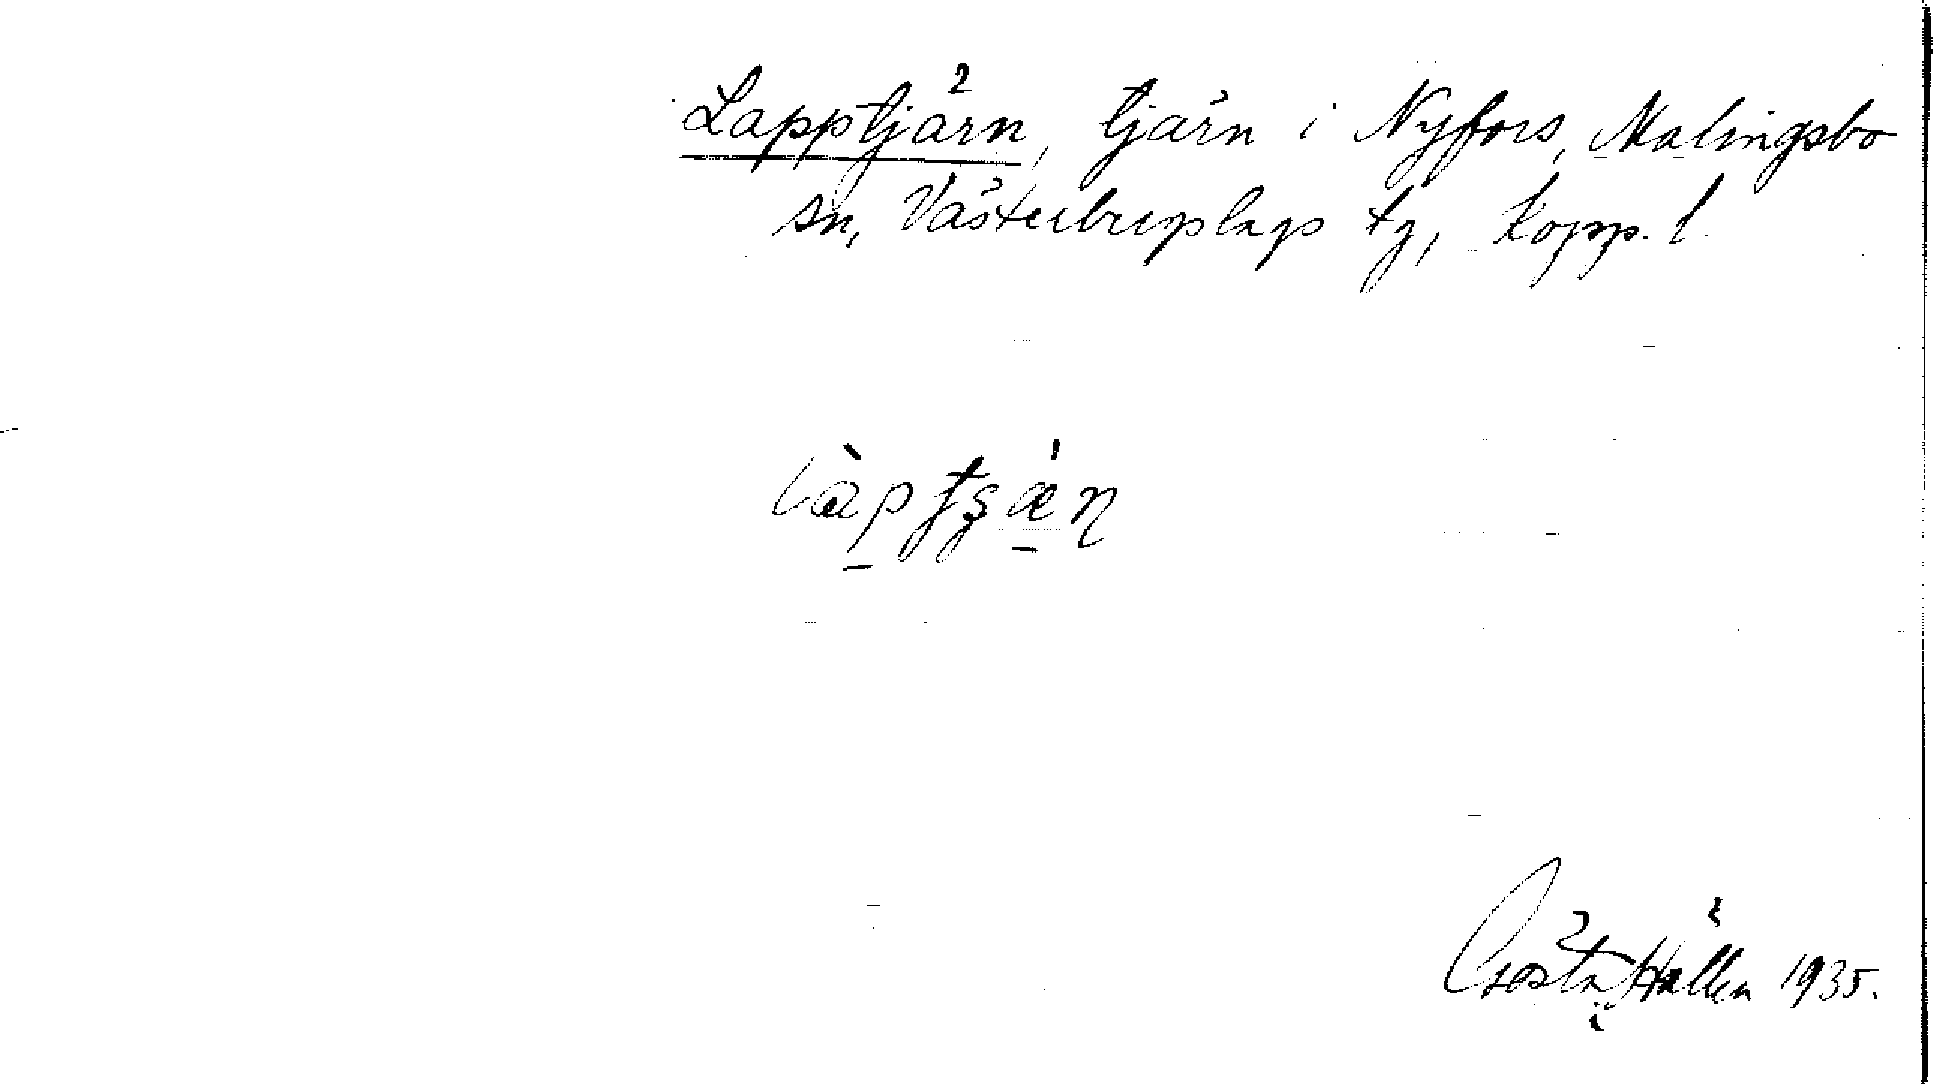 Lapptjärn, tjärn i Nyfors, Malingsbo
sn, Västerbergslags tg, Kopp. l.
làptʂæ̀ɳ
Gösta Hällen 1935.